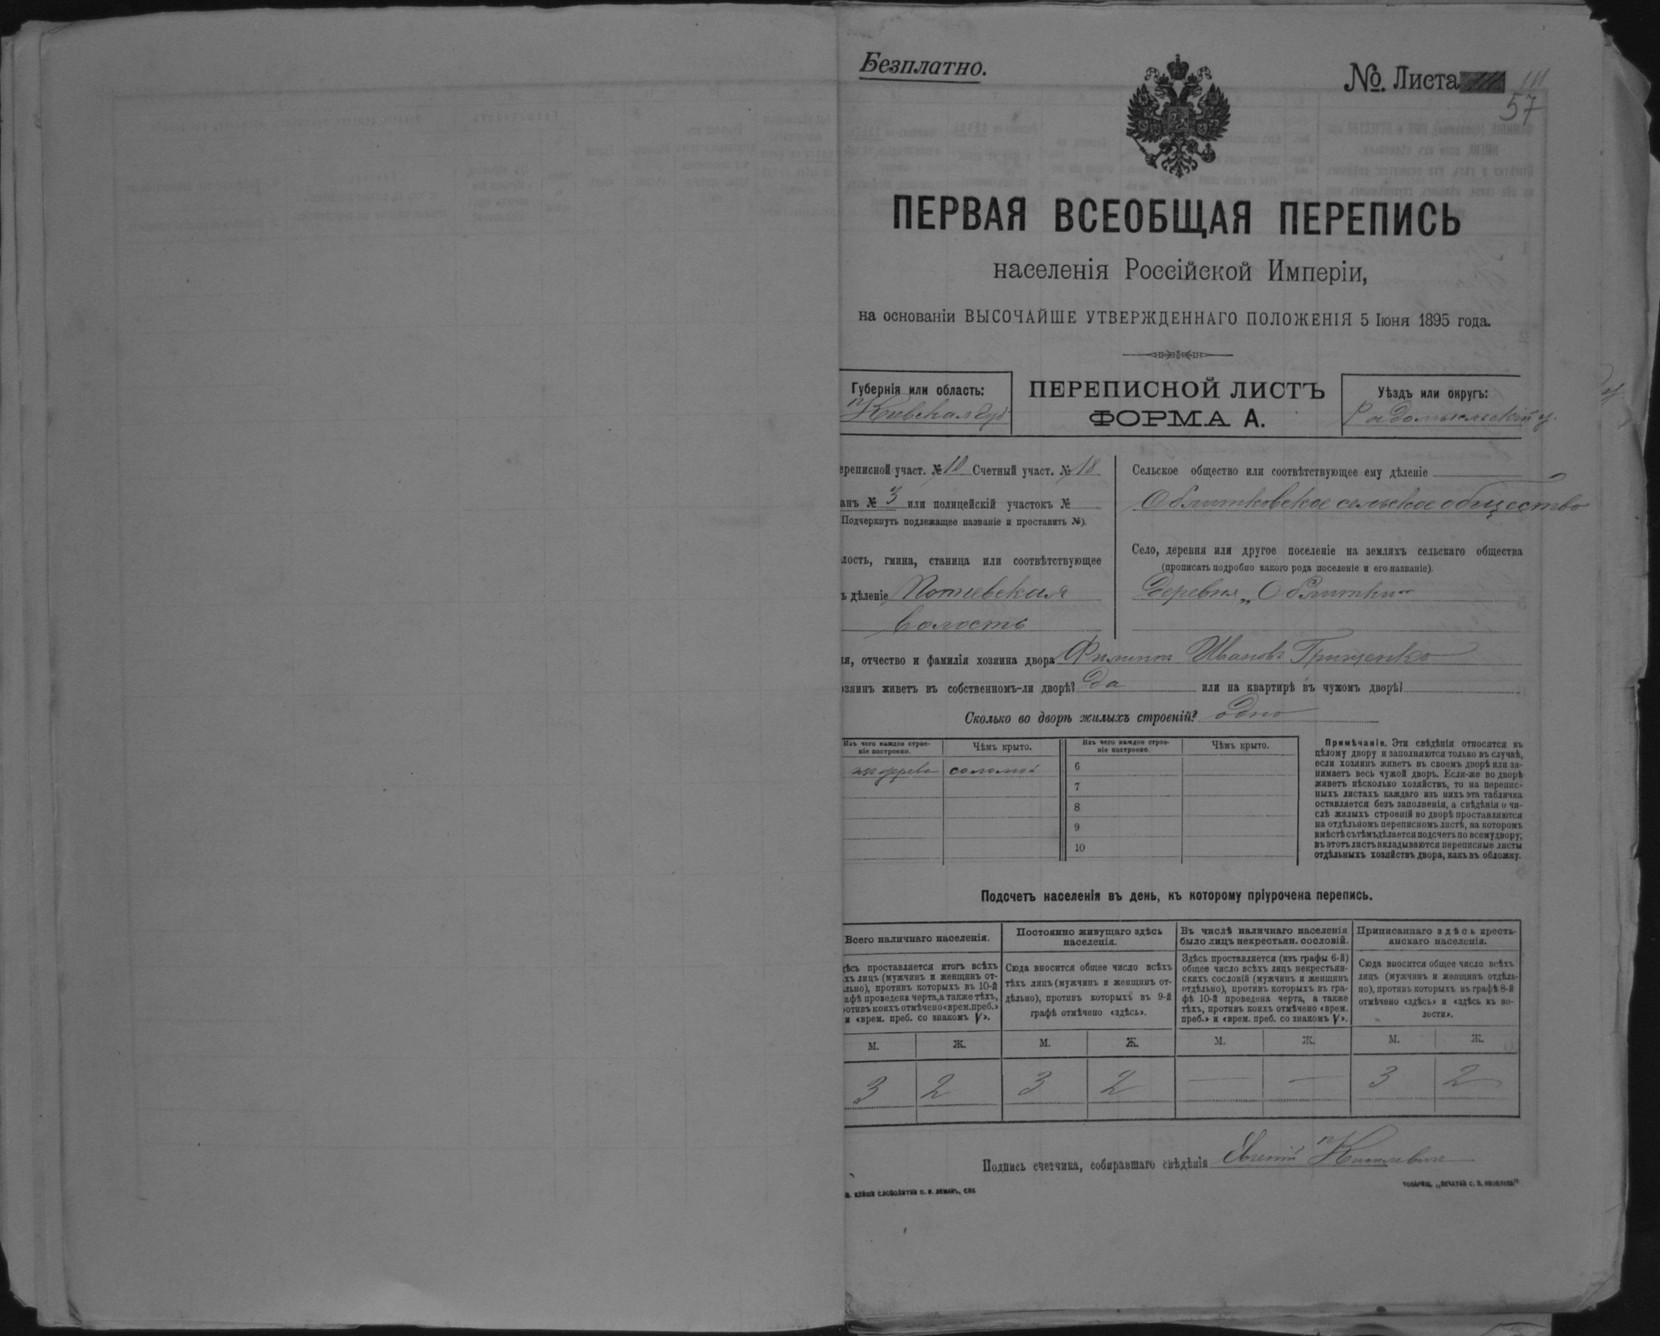 Безплатно.
№. Листа 111
57
ПЕРВАЯ ВСЕОБЩАЯ ПЕРЕПИСЬ
населенія Россійской Имперіи,
на основаніи ВЫСОЧАЙШЕ УТВЕРЖДЕННАГО ПОЛОЖЕНІЯ 5 Іюня 1895 года.
Губернія или область:
Кіевская губ
ПЕРЕПИСНОЙ ЛИСТЪ
ФОРМА А.
Уѣздъ или округъ:
Радомысльскій у.
ереписной участ. № 10 Счетный участ. № 18
анъ № 3 или полицейскій участокъ №
Подчеркнуть подлежащее названіе и проставить №).
лость, гмина, станица или соотвѣтствующее
ъ дѣленіе Потіевская
волость
Сельское общество или соотвѣтствующее ему дѣленіе
Облитковское сельское общество
Село, деревня или другое поселеніе на земляхъ сельскаго общества
(прописать подробно какого рода поселеніе и его названіе).
Деревня „Облитки"
я, отчество и фамилія хозяина двора Филиппъ Ивановъ Грищенко
озяинъ живетъ въ собственномъ-ли дворѣ? да или на квартирѣ въ чужомъ дворѣ?
Сколько во дворѣ жилыхъ строеній? одно
Изъ чего каждое строе-
ніе построено.
Чѣмъ крыто.
Изъ чего каждое строе-
ніе построено.
Чѣмъ крыто.
изъ дерева соломой
6
7
8
9
10
Примѣчаніе. Эти свѣдѣнія относятся къ
цѣлому двору и заполняются только въ случаѣ,
если хозяинъ живетъ въ своемъ дворѣ или за-
нимаетъ весь чужой дворъ. Если-же во дворѣ
живетъ нѣсколько хозяйствъ, то на перепис-
ныхъ листахъ каждаго изъ нихъ эта табличка
оставляется безъ заполненія, а свѣдѣнія о чи-
слѣ жилыхъ строеній во дворѣ проставляются
на отдѣльномъ переписномъ листѣ, на которомъ
вмѣстѣ съ тѣмъ дѣлается подсчетъ по всему двору;
въ этотъ листъ вкладываются переписные листы
отдѣльныхъ хозяйствъ двора, какъ въ обложку.
Подсчетъ населенія въ день, къ которому пріурочена перепись.
Всего наличнаго населенія.
ѣсь проставляется итогъ всѣхъ
хъ лицъ (мужчинъ и женщинъ от-
льно), противъ которыхъ въ 10-й
афѣ проведена черта, а также тѣхъ,
отивъ коихъ отмѣчено «врем. преб.»
и «врем. преб. со знакомъ V».
Постоянно живущаго здѣсь
населенія.
Сюда вносится общее число всѣхъ
тѣхъ лицъ (мужчинъ и женщинъ от-
дѣльно), противъ которыхъ въ 9-й
графѣ отмѣчено «здѣсь».
Въ числѣ наличнаго населенія
было лицъ некрестьян. сословій.
Здѣсь проставляется (изъ графы 6-й)
общее число всѣхъ лицъ некрестьян-
скихъ сословій (мужчинъ и женщинъ
отдѣльно), противъ которыхъ въ гра-
фѣ 10-й проведена черта, а также
тѣхъ, противъ коихъ отмѣчено «врем.
преб.» и «врем. преб. со знакомъ V».
Приписаннаго здѣсь кресть-
янскаго населенія.
Сюда вносится общее число всѣхъ
лицъ (мужчинъ и женщинъ отдѣль-
но), противъ которыхъ въ графѣ 8-й
отмѣчено «здѣсь» и «здѣсь къ во-
лости».
М. Ж. М. Ж. М. Ж. М. Ж.
3 2 3 2 — — 3 2
Подпись счетчика, собиравшаго свѣдѣнія Евгеній
ТОВАРИЩ. „ПЕЧАТНЯ С. П. ЯКОВЛЕВА"